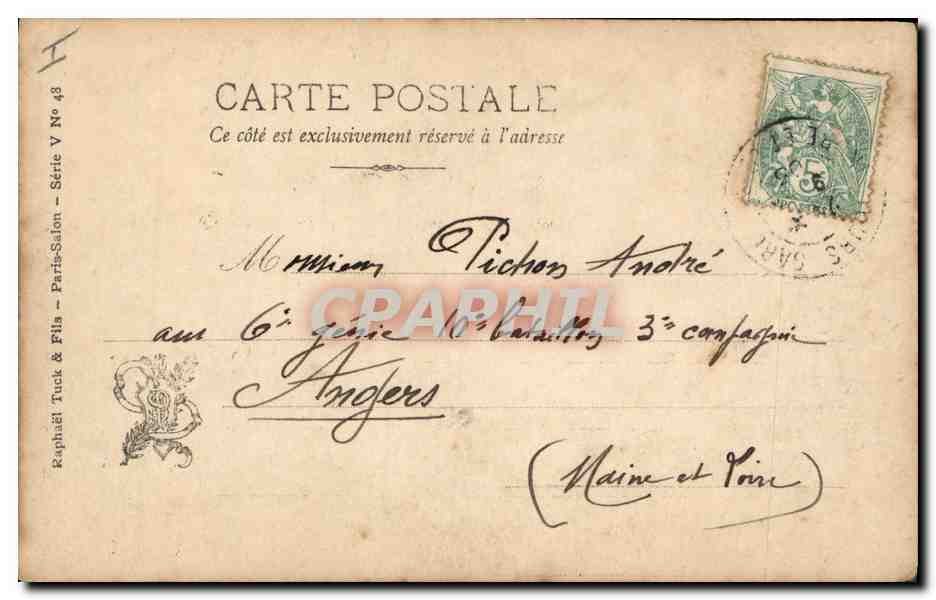 Raphaël Tuck & Fils — Paris-Salon — Série V Nº 48
CARTE POSTALE
Ce côté est exclusivement réservé à l'adresse
5
Monsieur Pichon André
au 6e génie 10e bataillon 3e compagnie
Angers
(Maine et Loire)
CPAPHIL